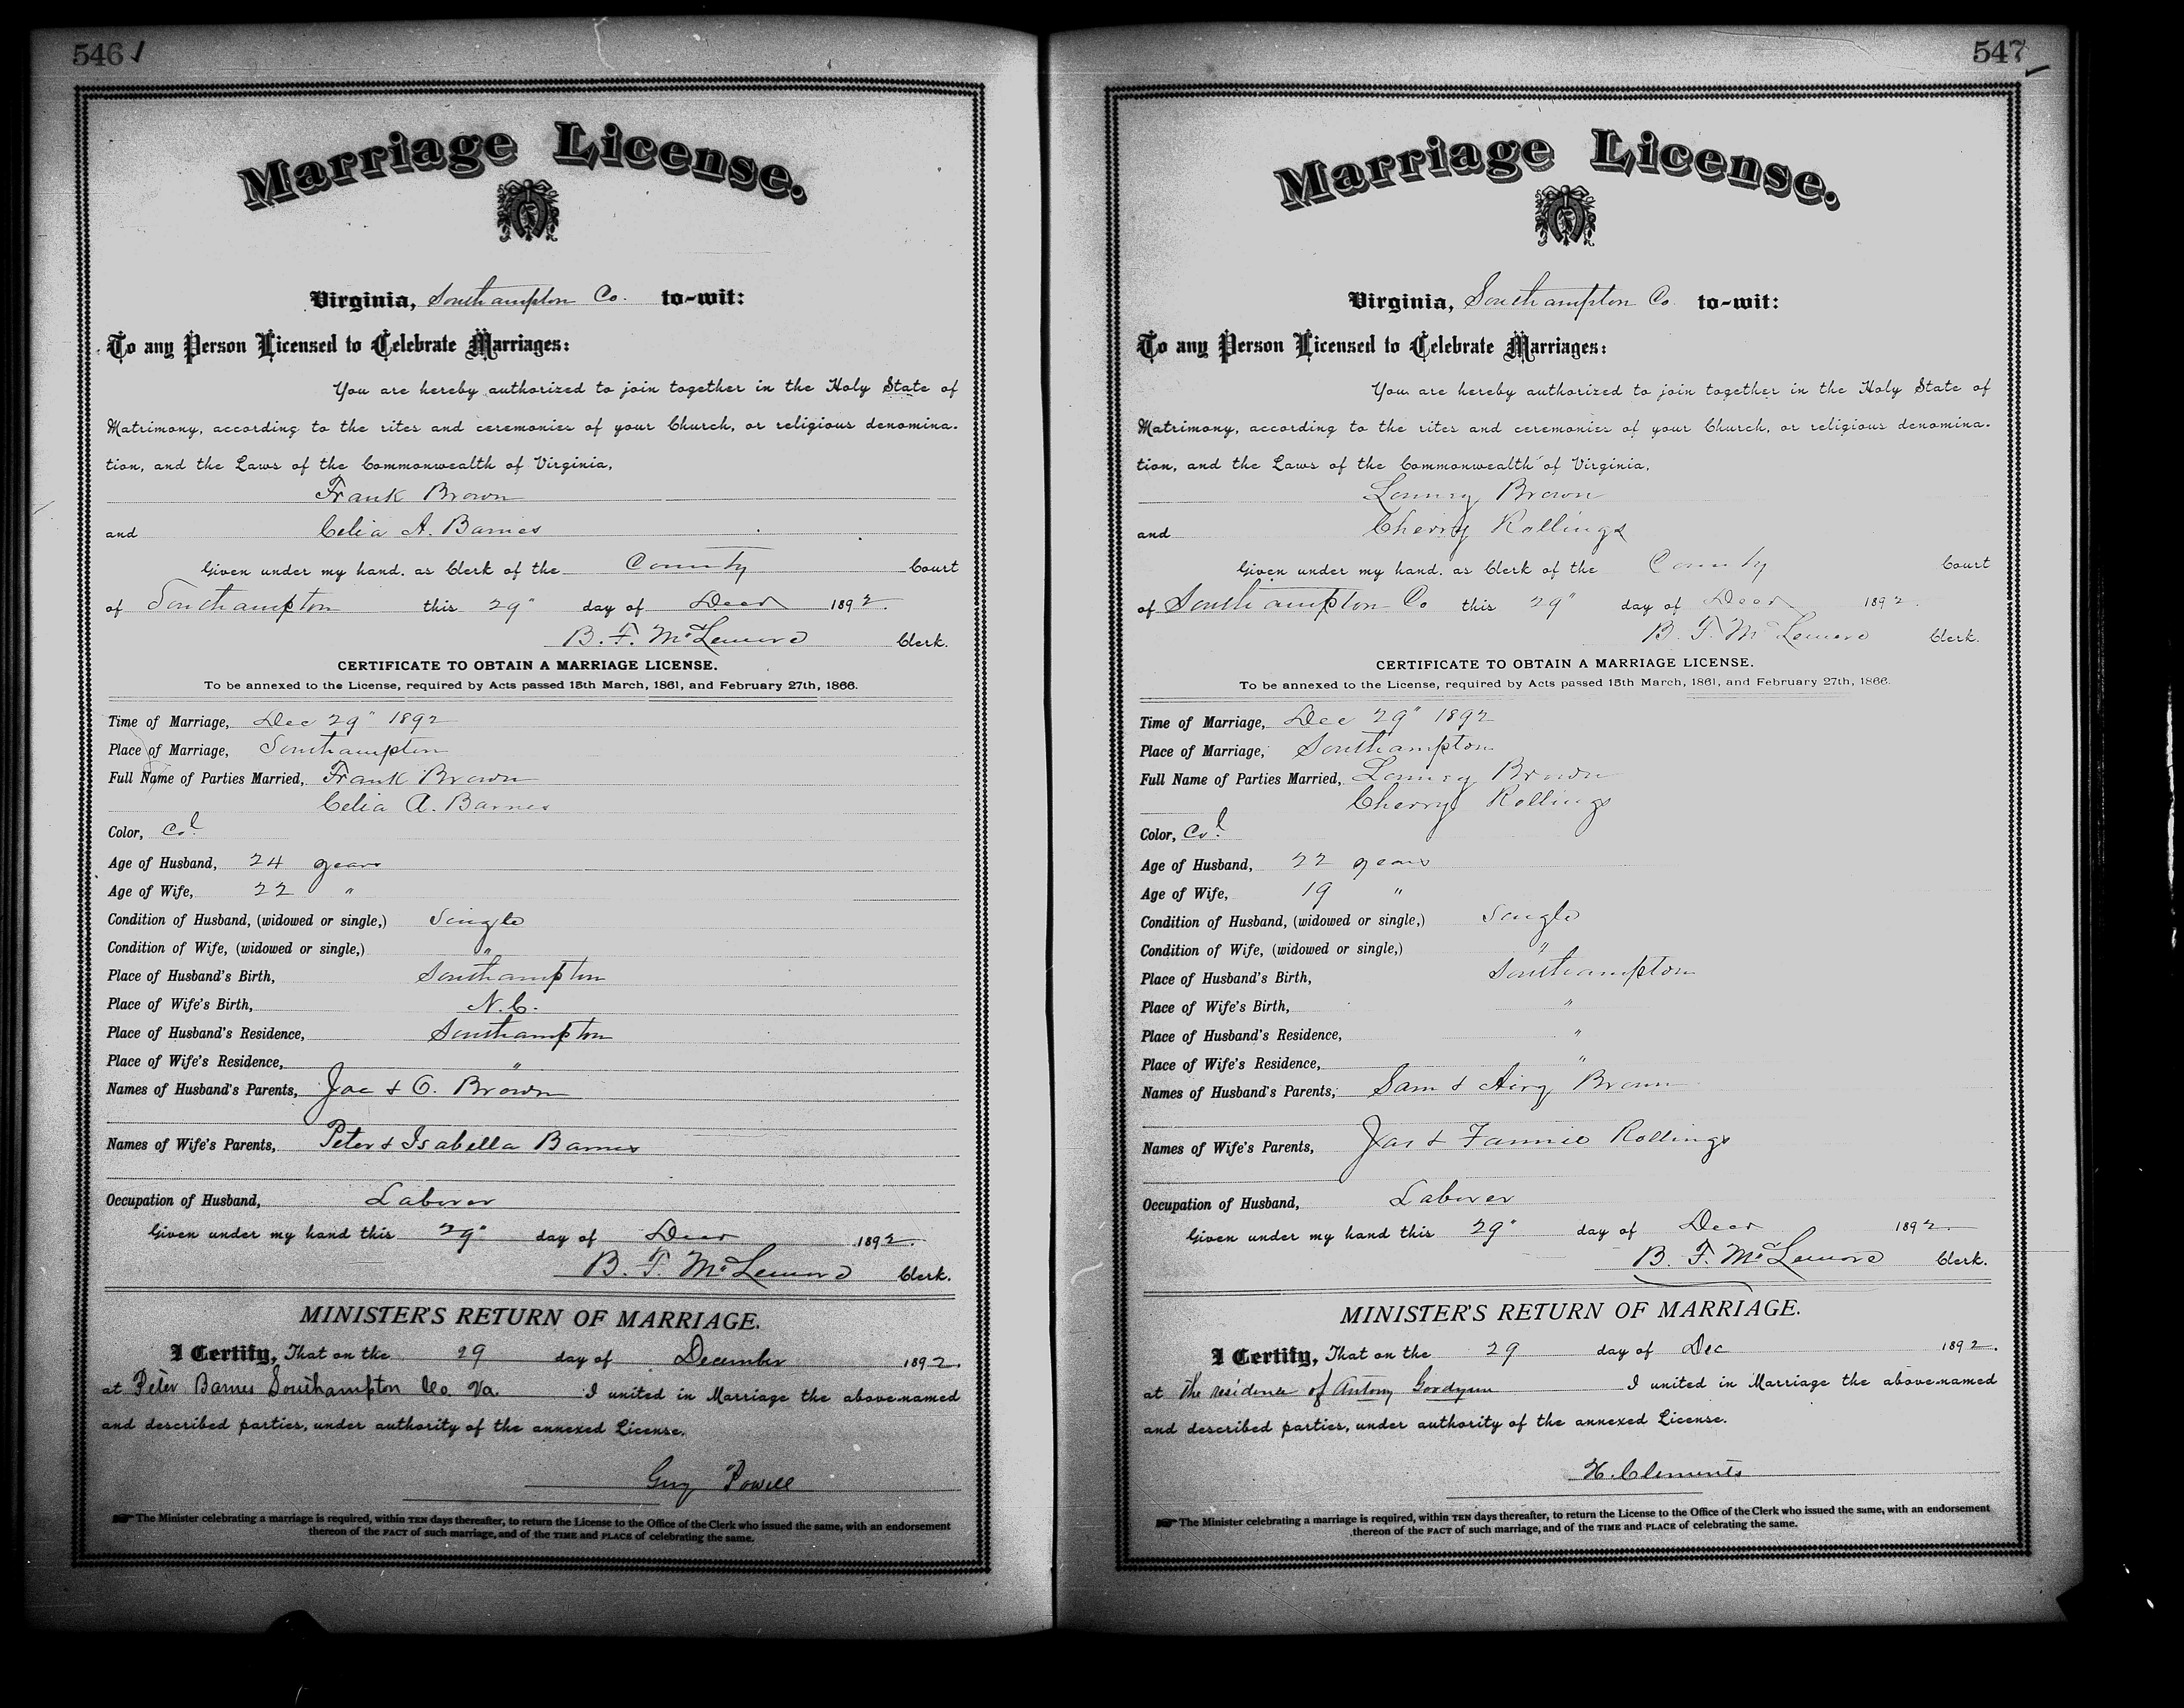 546
Marriage License.
Virginia, Southampton Co. to-wit:
To any Person Licensed to Celebrate Marriages:
You are hereby authorized to join together in the Holy State of
Matrimony, according to the rites and ceremonies of your Church, or religious denomina-
tion, and the Laws of the Commonwealth of Virginia,
Frank Brown
and Celia A. Barnes
Given under my hand, as Clerk of the County Court
of Southampton this 29" day of Decr 1892.
B. F. McLemore Clerk.
CERTIFICATE TO OBTAIN A MARRIAGE LICENSE.
To be annexed to the License, required by Acts passed 15th March, 1861, and February 27th, 1866.
Time of Marriage, Dec 29" 1892
Place of Marriage, Southampton
Full Name of Parties Married, Frank Brown
Celia A. Barnes
Color, Col
Age of Husband, 24 years
Age of Wife, 22 "
Condition of Husband, (widowed or single,) Single
Condition of Wife, (widowed or single,) "
Place of Husband's Birth, Southampton
Place of Wife's Birth, N.C.
Place of Husband's Residence, Southampton
Place of Wife's Residence, "
Names of Husband's Parents, & C. Brown
Names of Wife's Parents, Peter & Isabella Barnes
Occupation of Husband, Laborer
Given under my hand this 29" day of Decr 1892.
B. F. McLemore Clerk.
MINISTER'S RETURN OF MARRIAGE.
I Certify, That on the 29 day of December 1892.
at Peter Barnes Southampton Co. Va. I united in Marriage the above-named
and described parties, under authority of the annexed License.
Guy Powell
The Minister celebrating a marriage is required, within TEN days thereafter, to return the License to the Office of the Clerk who issued the same, with an endorsement
thereon of the FACT of such marriage, and of the TIME and PLACE of celebrating the same.
547
Marriage License.
Virginia, Southampton Co to-wit:
To any Person Licensed to Celebrate Marriages:
You are hereby authorized to join together in the Holy State of
Matrimony, according to the rites and ceremonies of your Church, or religious denomina-
tion, and the Laws of the Commonwealth of Virginia,
Brown
and Cherry Rollings
Given under my hand, as Clerk of the County Court
of Southampton Co this 29" day of Decr 1892.
B. F. McLemore Clerk.
CERTIFICATE TO OBTAIN A MARRIAGE LICENSE.
To be annexed to the License, required by Acts passed 15th March, 1861, and February 27th, 1866.
Time of Marriage, Dec 29" 1892
Place of Marriage, Southampton
Full Name of Parties Married, Brown
Cherry Rollings
Color, Col
Age of Husband, 22 years
Age of Wife, 19 "
Condition of Husband, (widowed or single,) Single
Condition of Wife, (widowed or single,) "
Place of Husband's Birth, Southampton
Place of Wife's Birth, "
Place of Husband's Residence, "
Place of Wife's Residence, "
Names of Husband's Parents, Sam & Airy Brown
Names of Wife's Parents, Jas & Fannie Rollings
Occupation of Husband, Laborer
Given under my hand this 29" day of Decr 1892.
B. F. McLemore Clerk.
MINISTER'S RETURN OF MARRIAGE.
I Certify, That on the 29 day of Dec 1892.
at the residence of Antony I united in Marriage the above-named
and described parties, under authority of the annexed License.
H. Clements
The Minister celebrating a marriage is required, within TEN days thereafter, to return the License to the Office of the Clerk who issued the same, with an endorsement
thereon of the FACT of such marriage, and of the TIME and PLACE of celebrating the same.